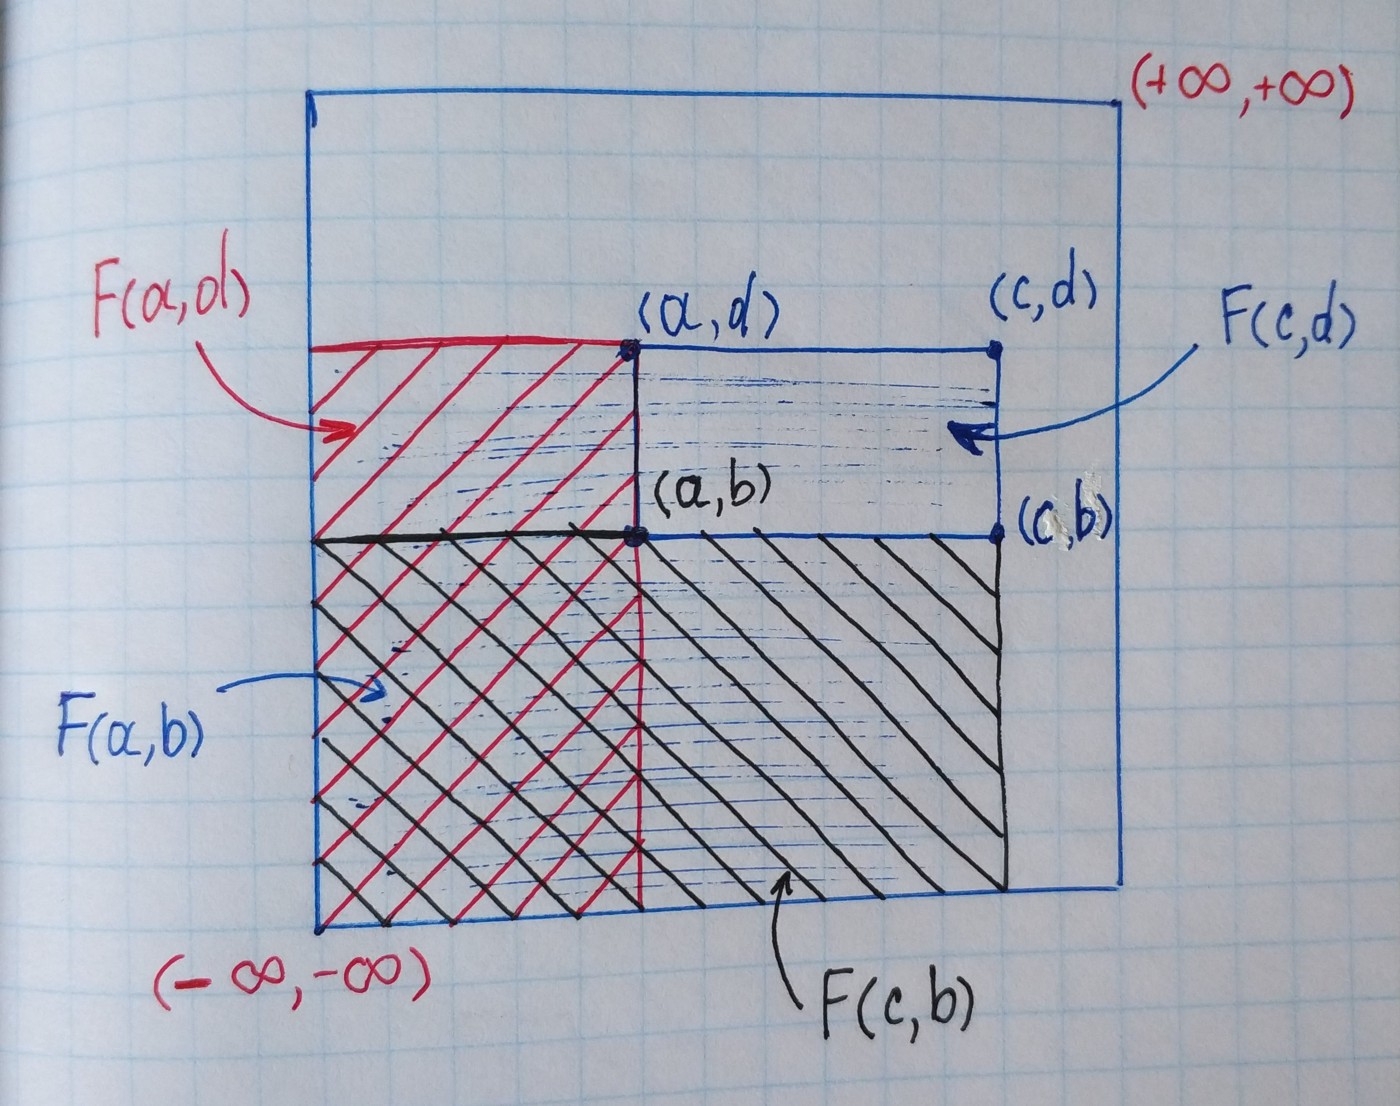 (+∞,+∞)
F(a,d)
(a,d)
(c,d)
F(c,d)
(a,b)
(c,b)
F(a,b)
(-∞,-∞)
F(c,b)